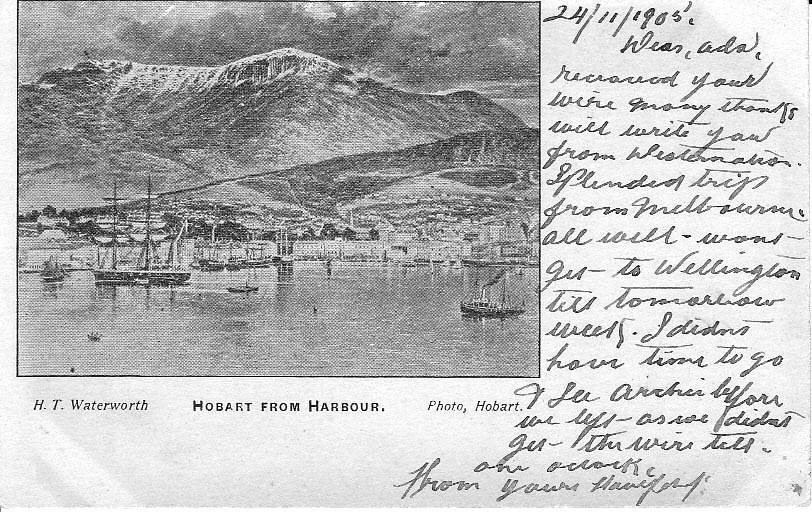 24/11/1905.
Dear, ada,
received your
wire many thanks
will write you
from
Splended trip
from Melbourne.
all well - wont
get - to Wellington
till tomorrow
week. I didnt
have time to go
& See Archie before
we left - as we didnt
get - the wire till.
one oclock.
from yours
H. T. Waterworth
HOBART FROM HARBOUR.
Photo, Hobart.